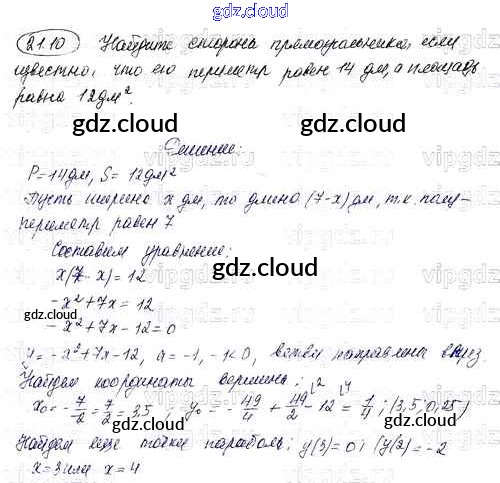 gdz.cloud
21.10 Найдите стороны прямоугольника, если
известно, что его периметр равен 14 дм, а площадь
равна 12дм².
gdz.cloud
Решение:
P=14дм, S= 12дм²
Пусть ширина x дм, то длина (7-x) дм, т.к. полу-
периметр равен 7
gdz.cloud
Составим уравнение:
x(7-x)=12
gdz.cloud
-x²+7x=12
-x²+7x-12=0
gdz.cloud
y=-x²+7x-12, a=-1, -1<0, ветви направлены вниз.
Найдем координаты вершины:
x₀=-7/-2=7/2=3,5; y₀=-49/4+49/2-12=1/4; (3,5; 0,25)
Найдем еще точки параболы: y(3)=0; y(2)=-2
x=3 или x=4
gdz.cloud